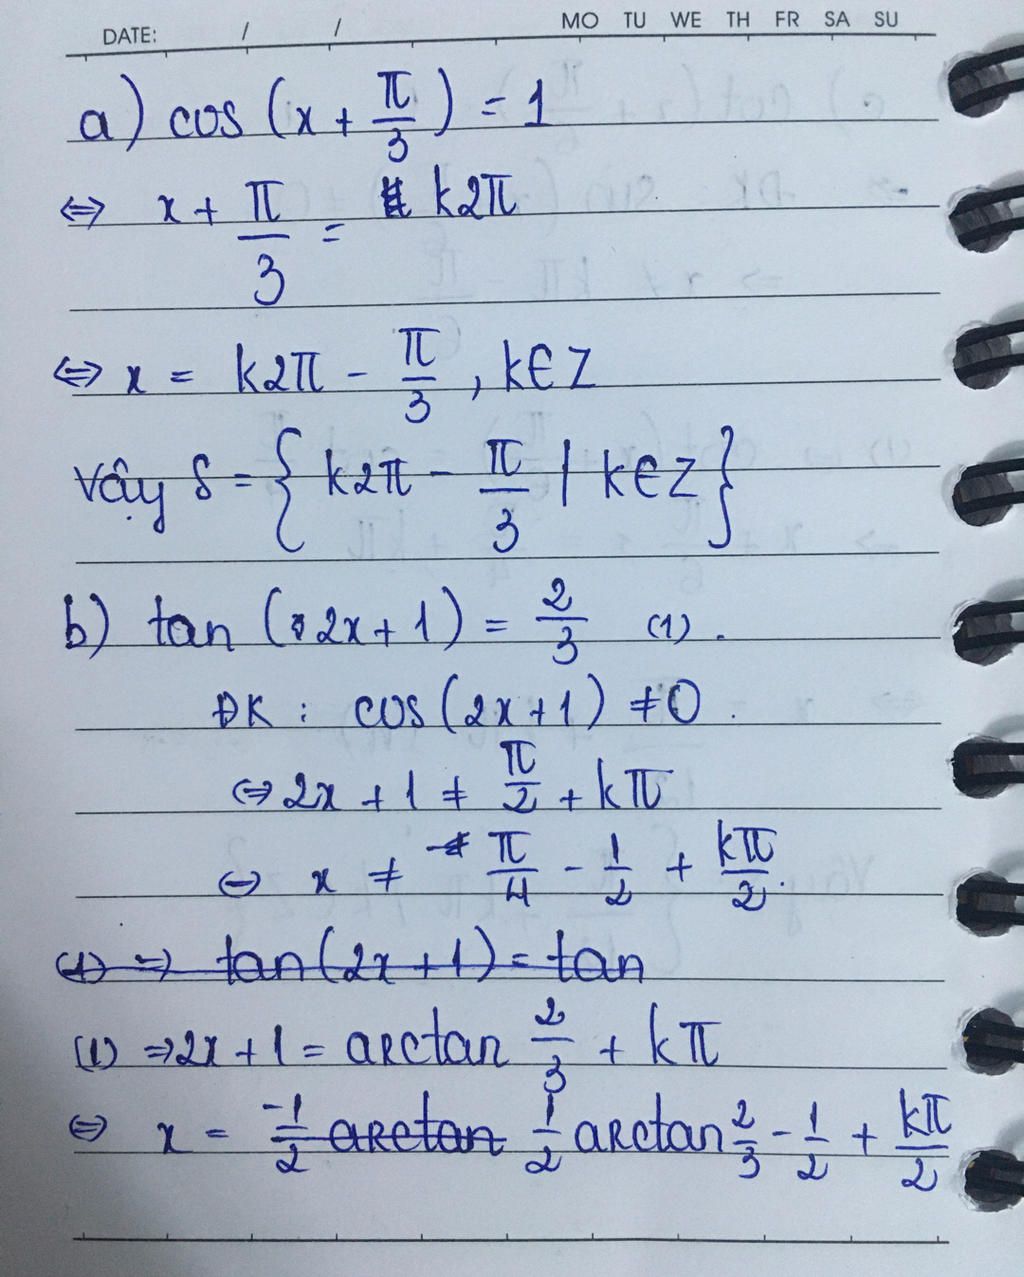 DATE: / / MO TU WE TH FR SA SU
a) cos (x + π/3) = 1
⇔ x + π/3 = k2π
⇔ x = k2π - π/3, k∈Z
Vậy S = { k2π - π/3 | k∈Z }
b) tan (2x + 1) = 2/3 (1).
ĐK : cos (2x+1) ≠ 0.
⇔ 2x + 1 ≠ π/2 + kπ
⇔ x ≠ π/4 - 1/2 + kπ/2.
(1) ⇒ tan(2x+1) = tan
(1) ⇒ 2x + 1 = arctan 2/3 + kπ
⇔ x = -1/2 arctan 1/2 arctan 2/3 - 1/2 + kπ/2